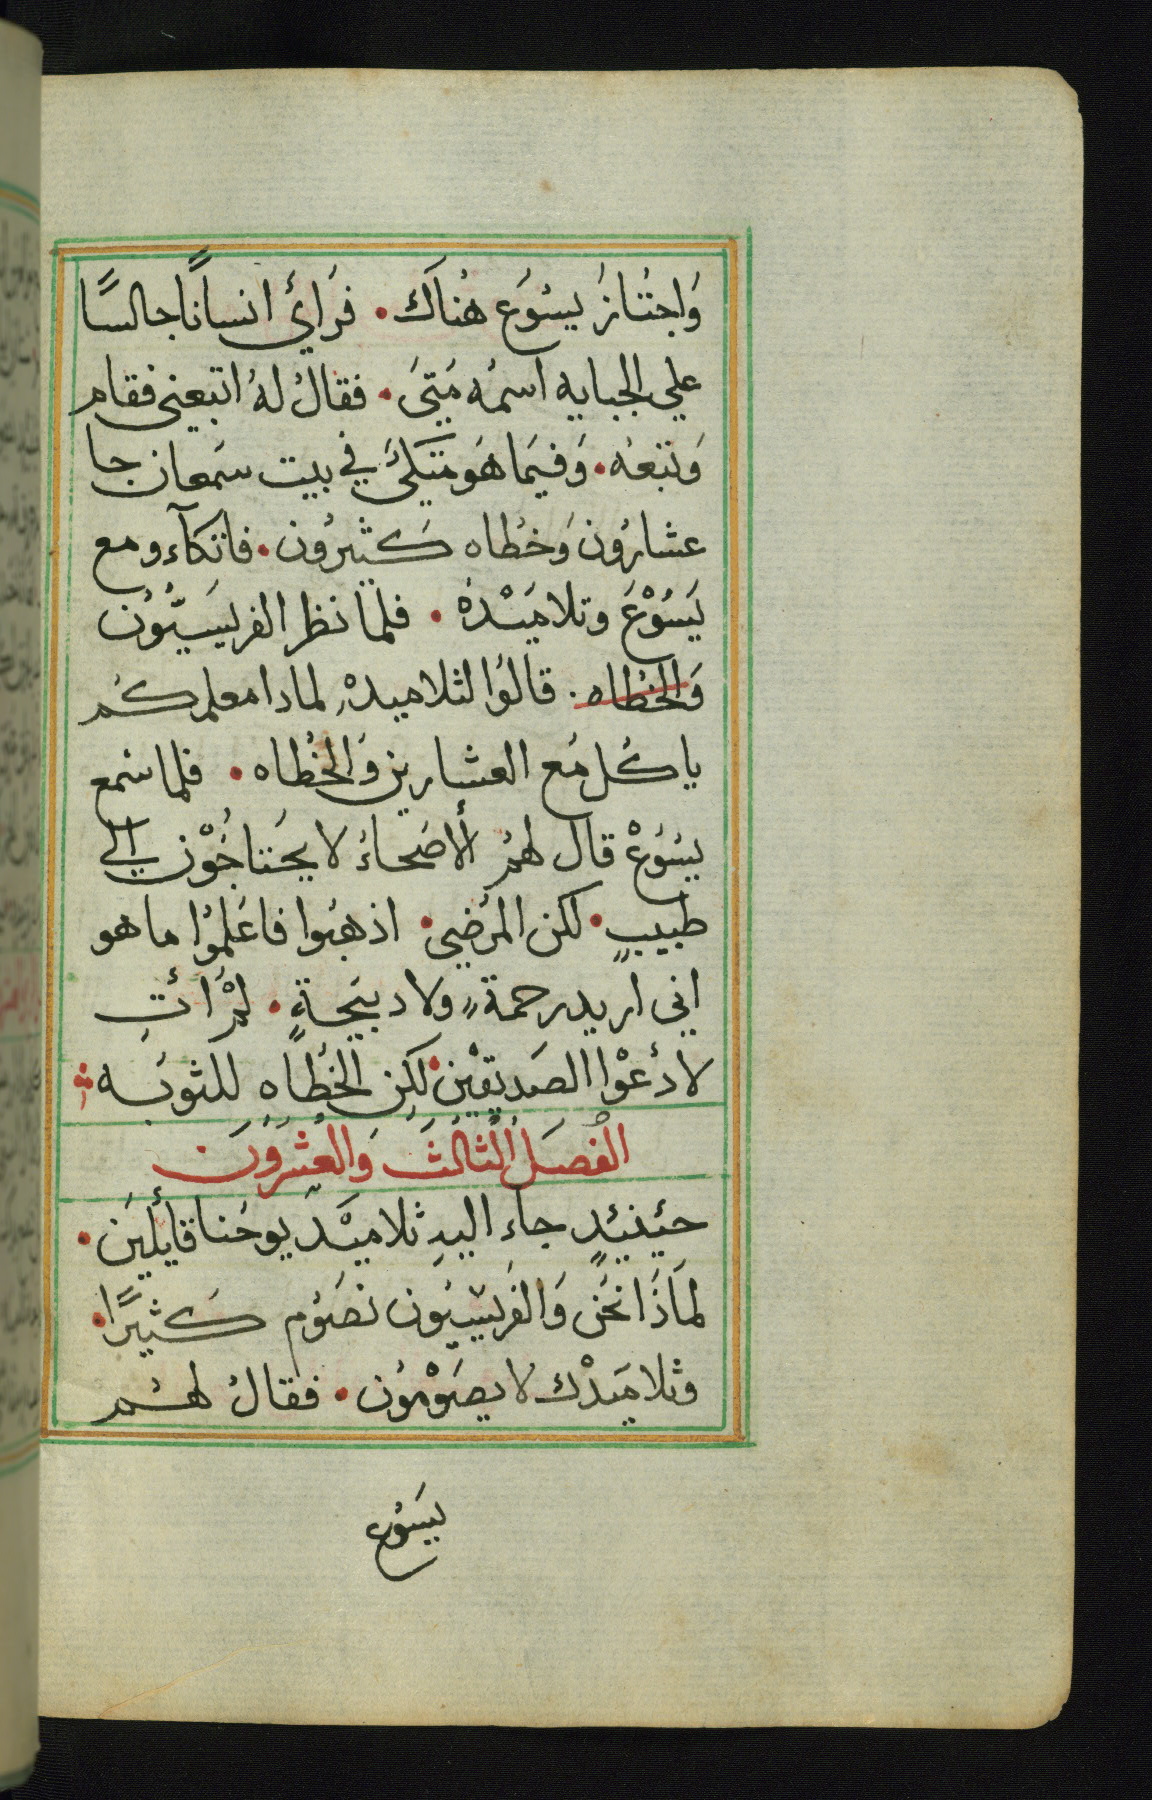 وَاجتَازَ يسُوَع هنُاكَ • فرَائَ انساناً جالسًا
علي الجبايه اسمُه مَتيَ • فقالُ لهُ اتبعني فقام
وَتبَعهُ • وَفيمَا هَو متَكئَ في بيت سَمعان جا
عشارُون وَخطُاه كَثيرُون • فاتكآء و مع
يَسَوُعَ وتلاميَدهْ • فلمَا نظر الفريسَيّوُن
وَالخطُاه . قالوُا لتلاميدهْ لمادا معلمكُم
ياكُل مَع العشارين وَالخطُاه • فلما سَمع
يسُوَعْ قال لهمُ ألاصَحاءُ لا يحَتاجُوْن الي
طبيبٍ • لكن المرَضي • اذهبُوا فاعَلموُا ما هو
اني اريد رحمةٍ ولا دبيَحةٍ • لمْ اتِٔ
لادٔعوْا الصَديقيْن • لكِن الخطُاهِ للثوبَه
الفُصَلُ الثَالثَ وَالعِشرُوُنَ
حئنئدٍ جاء اليهِ ثلاميْدَ يوحَنا قائلينَ •
لماَذَا نحَن وَالفَريسْيوَن نصَوُم كَثيرًا •
وثلاميَدْك لا يصَوْموُن • فقالُ لهمُ
يسَوُع